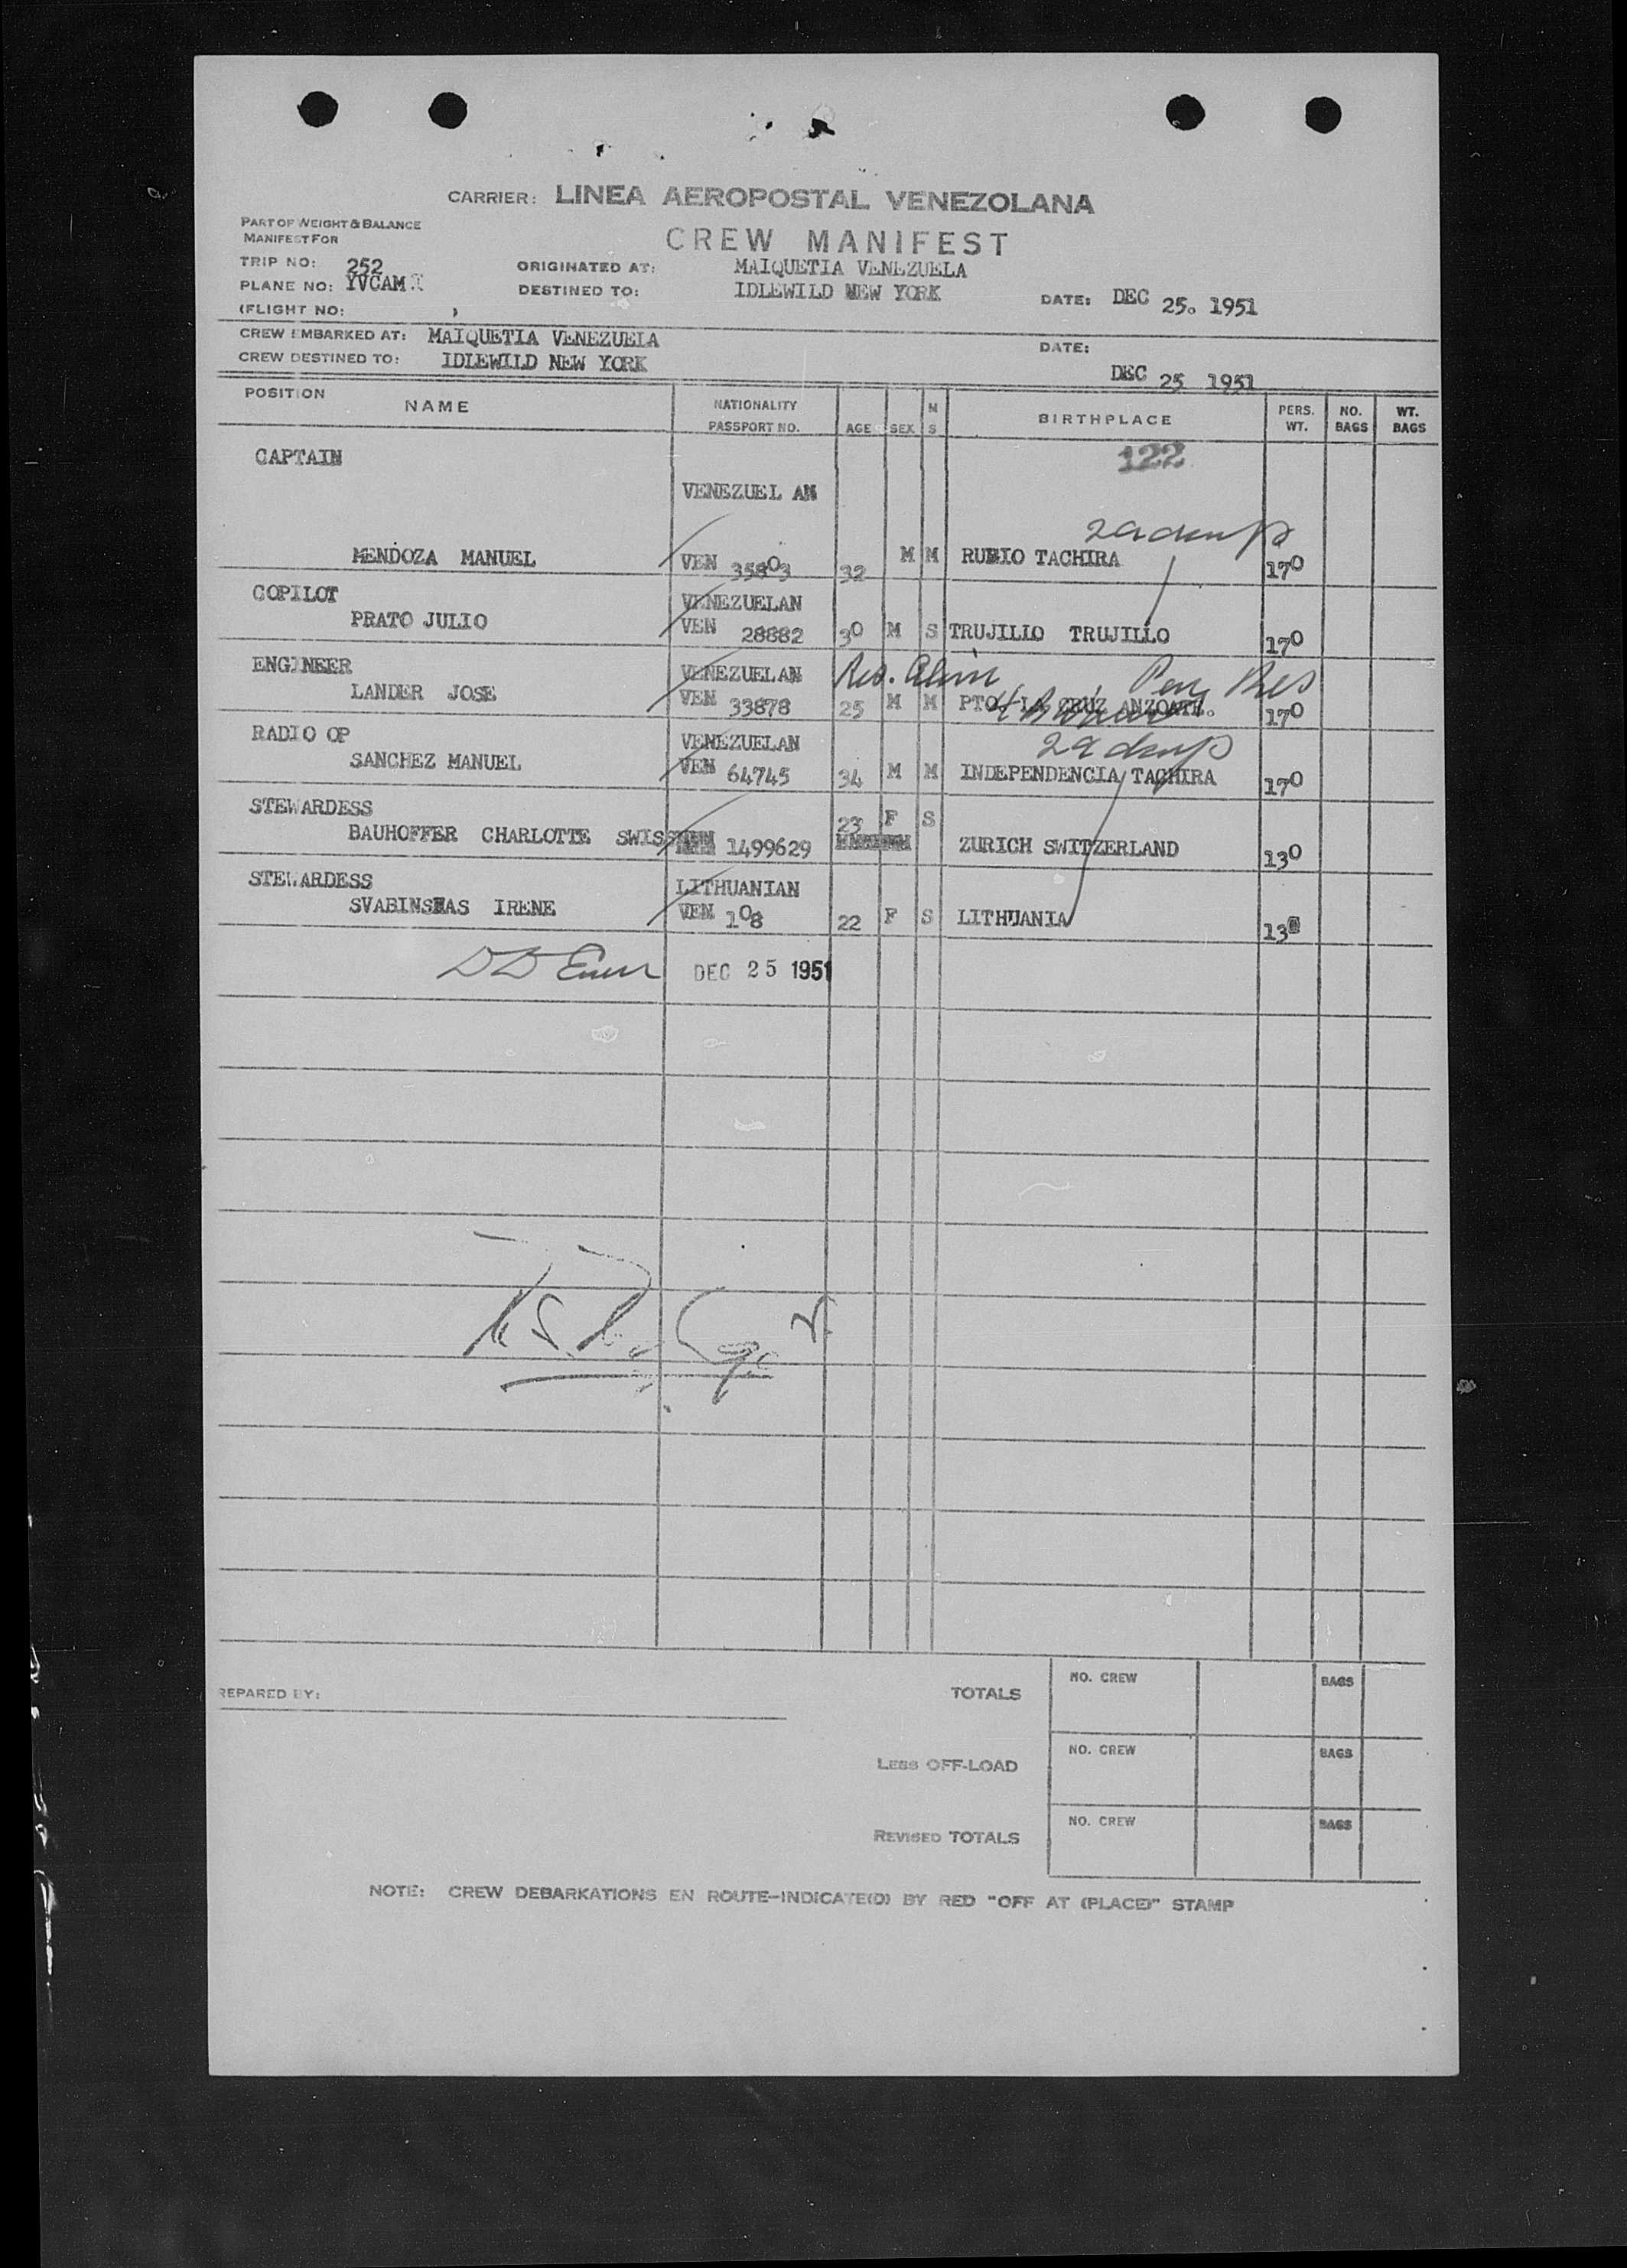 CARRIER: LINEA AEROPOSTAL VENEZOLANA
PART OF WEIGHT & BALANCE
MANIFEST FOR
CREW MANIFEST
TRIP NO: 252
ORIGINATED AT: MAIQUETIA VENEZUELA
PLANE NO: YVCAM
DESTINED TO: IDLEWILD NEW YORK
DATE: DEC 25. 1951
(FLIGHT NO: )
CREW EMBARKED AT: MAIQUETIA VENEZUELA
DATE:
CREW DESTINED TO: IDLEWILD NEW YORK
DEC 25 1951
POSITION NAME NATIONALITY PASSPORT NO. AGE SEX M S BIRTHPLACE PERS. WT. NO. BAGS WT. BAGS
CAPTAIN 122
VENEZUEL AN
MENDOZA MANUEL VEN 35803 32 M M RUBIO TACHIRA 170
COPILOT VENEZUELAN
PRATO JULIO VEN 28882 30 M S TRUJILLO TRUJILLO 170
ENGINEER VENEZUELAN
LANDER JOSE VEN 33878 25 M M PTO LA CRUZ ANZOATE. 170
RADIO OP VENEZUELAN
SANCHEZ MANUEL VEN 64745 34 M M INDEPENDENCIA TACHIRA 170
STEWARDESS
BAUHOFFER CHARLOTTE SWISS 1499629 23 F S ZURICH SWITZERLAND 130
STEWARDESS LITHUANIAN
SVABINSKAS IRENE VEN 108 22 F S LITHUANIA 130
DEC 25 1951
REPARED BY:
TOTALS NO. CREW BAGS
LESS OFF-LOAD NO. CREW BAGS
REVISED TOTALS NO. CREW BAGS
NOTE: CREW DEBARKATIONS EN ROUTE-INDICATE(D) BY RED "OFF AT (PLACE)" STAMP